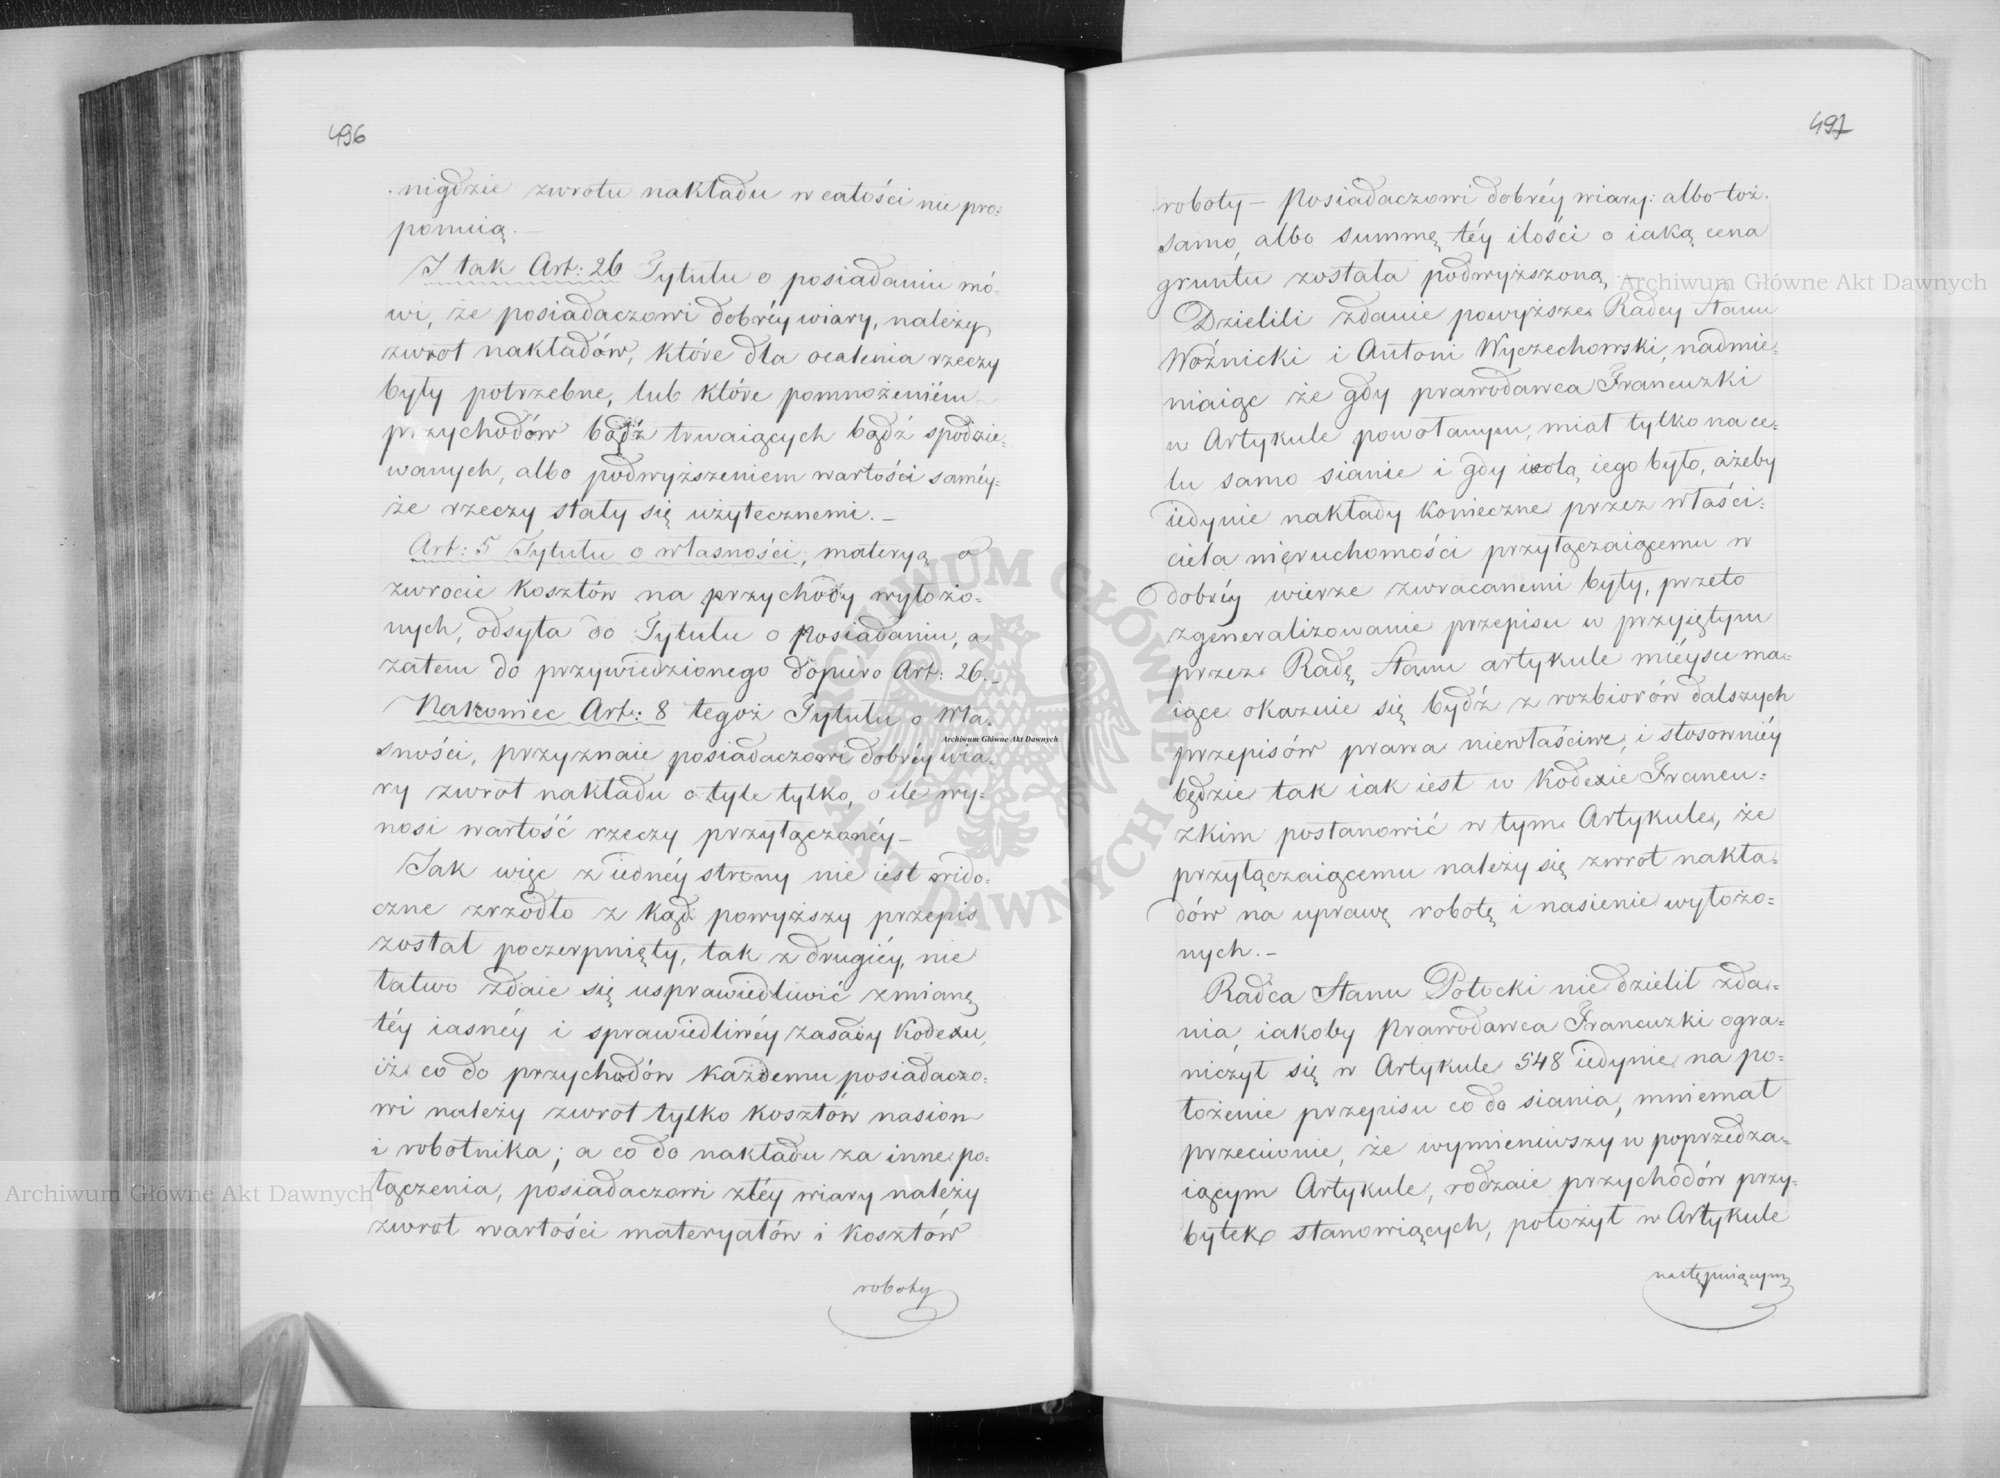 496
nigdzie zwrotu nakładu w całości nie pro=
ponuią.—
I tak Art: 26 Tytułu o posiadaniu mó=
wi, że posiadaczowi dobréy wiary, należy
zwrot nakładów, które dla ocalenia rzeczy
były potrzebne, lub które pomnożeniém
przychodów bądź trwaiących bądź spodzie=
wanych, albo podwyższeniem wartości saméy=
że rzeczy stały się użytecznemi.—
Art: 5 Tytułu o własności, materyą o
zwrocie kosztów na przychody wyłożo=
nych, odsyła do Tytułu o posiadaniu, a
zatem do przywiedzionego dopiero Art: 26.—
Nakoniec Art: 8 tegoż Tytułu o Wła=
sności, przyznaie posiadaczowi dobréy wia=
ry zwrot nakładu o tyle tylko, o ile wy=
nosi wartość rzeczy przyłączonéy—
Jak więc z iednéy strony nie iest wido=
czne zrzodło z kąd powyższy przepis
został poczerpnięty, tak z drugiéy, nie
łatwo zdaie się usprawiedliwić zmianę
téy iasnéy i sprawiedliwéy zasady Kodexu,
iż co do przychodów każdemu posiadaczo=
wi należy zwrot tylko kosztów nasion
i robotnika; a co do nakładu za inne po=
łączenia, posiadaczowi złéy wiary należy
zwrot wartości materyałów i kosztów
roboty
497
roboty — posiadaczowi dobréy wiary: albo toż
samo, albo summę téy ilości o iaką cena
gruntu została podwyższoną.
Dzielili zdanie powyższe Radcy Stanu
Woźnicki i Antoni Wyczechowski, nadmie=
niaiąc że gdy prawodawca Francuzki
w Artykule powołanym, miał tylko na ce=
lu samo sianie i gdy wolą iego było, ażeby
iedynie nakłady konieczne przez właści=
ciela nieruchomości przyłączaiącemu w
dobréy wierze zwracanemi były, przeto
zgeneralizowanie przepisu w przyiętym
przez Radę Stanu artykule mieysce ma=
iące okazuie się bydź z rozbiorów dalszych
przepisów prawa niewłaściwe, i stosowniéy
będzie tak iak iest w Kodexie Francu=
zkim postanowić w tym Artykule, że
przyłączaiącemu należy się zwrot nakła=
dów na uprawę robotę i nasienie wyłożo=
nych.—
Radca Stanu Potocki nie dzielił zda=
nia, iakoby prawodawca Francuzki ogra=
niczył się w Artykule 548 iedynie na po=
łożenie przepisu co do siania, mniemał
przeciwnie, że wymieniwszy w poprzedza=
iącym Artykule, rodzaie przychodów przy=
byłek stanowiących, położył w Artykule
następuiącym
Archiwum Główne Akt Dawnych
Archiwum Główne Akt Dawnych
Archiwum Główne Akt Dawnych
ARCHIWUM GŁÓWNE AKT DAWNYCH